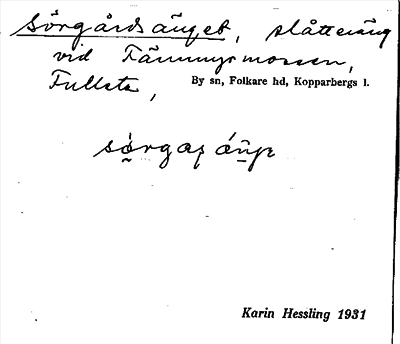 Sörgårdsänget, slåtteräng
vid Tämmyrmossen,
Fullsta,
By sn, Folkare hd, Kopparbergs l.
Karin Hessling 1931